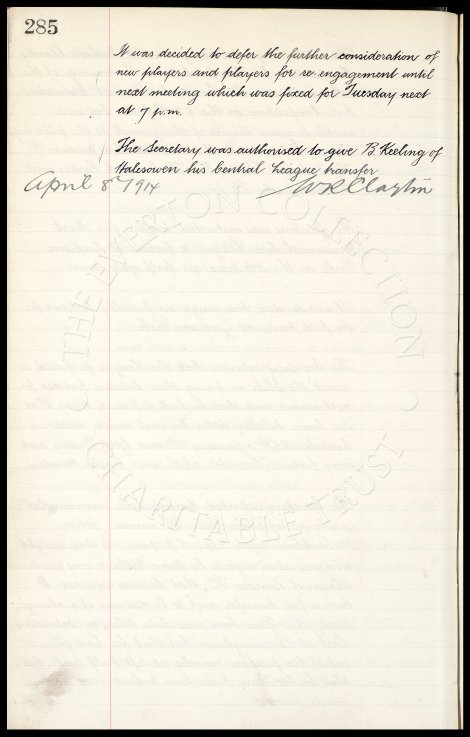 285
It was decided to defer the further consideration of
new players and players for re engagement until
next meeting which was fixed for Tuesday next
at 7 p.m.
The Secretary was authorised to give B. Keeling of
Halesowen his Central League transfer
April 8th 1914 W R Clayton
THE EVERTON COLLECTION
CHARITABLE TRUST